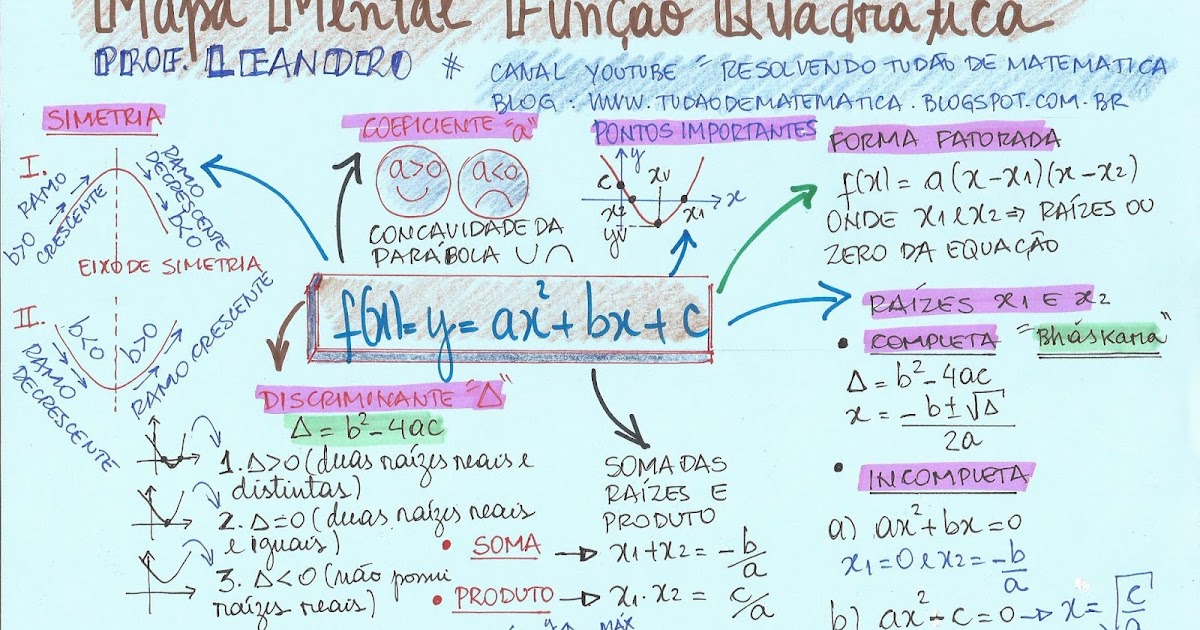 Mapa Mental Função Quadrática
PROF. LEANDRO # CANAL YOUTUBE = RESOLVENDO TUDÃO DE MATEMÁTICA
BLOG : WWW.TUDAODEMATEMATICA.BLOGSPOT.COM.BR
SIMETRIA
I.
b>0 RAMO
CRESCENTE
RAMO
DECRESCENTE
b<0
EIXO DE SIMETRIA
II.
b<0
b>0
RAMO
DECRESCENTE
RAMO CRESCENTE
COEFICIENTE "a"
a>0 a<0
CONCAVIDADE DA
PARÁBOLA ∪ ∩
PONTOS IMPORTANTES
y
c xv
x
x2 x1
yv
FORMA FATORADA
f(x) = a(x-x1)(x-x2)
ONDE x1 e x2 ⇒ RAÍZES OU
ZERO DA EQUAÇÃO
f(x) = y = ax² + bx + c
RAÍZES x1 E x2
• COMPLETA "Bháskara"
Δ = b² - 4ac
x = -b ± √Δ
2a
• INCOMPLETA
a) ax² + bx = 0
x1 = 0 e x2 = -b/a
b) ax² - c = 0 → x = √c/a
DISCRIMINANTE "Δ"
Δ = b² - 4ac
1. Δ>0 (duas raízes reais e
distintas)
2. Δ=0 (duas raízes reais
e iguais)
3. Δ<0 (não possui
raízes reais)
SOMA DAS
RAÍZES E
PRODUTO
• SOMA → x1 + x2 = -b/a
• PRODUTO → x1 . x2 = c/a
MÁX